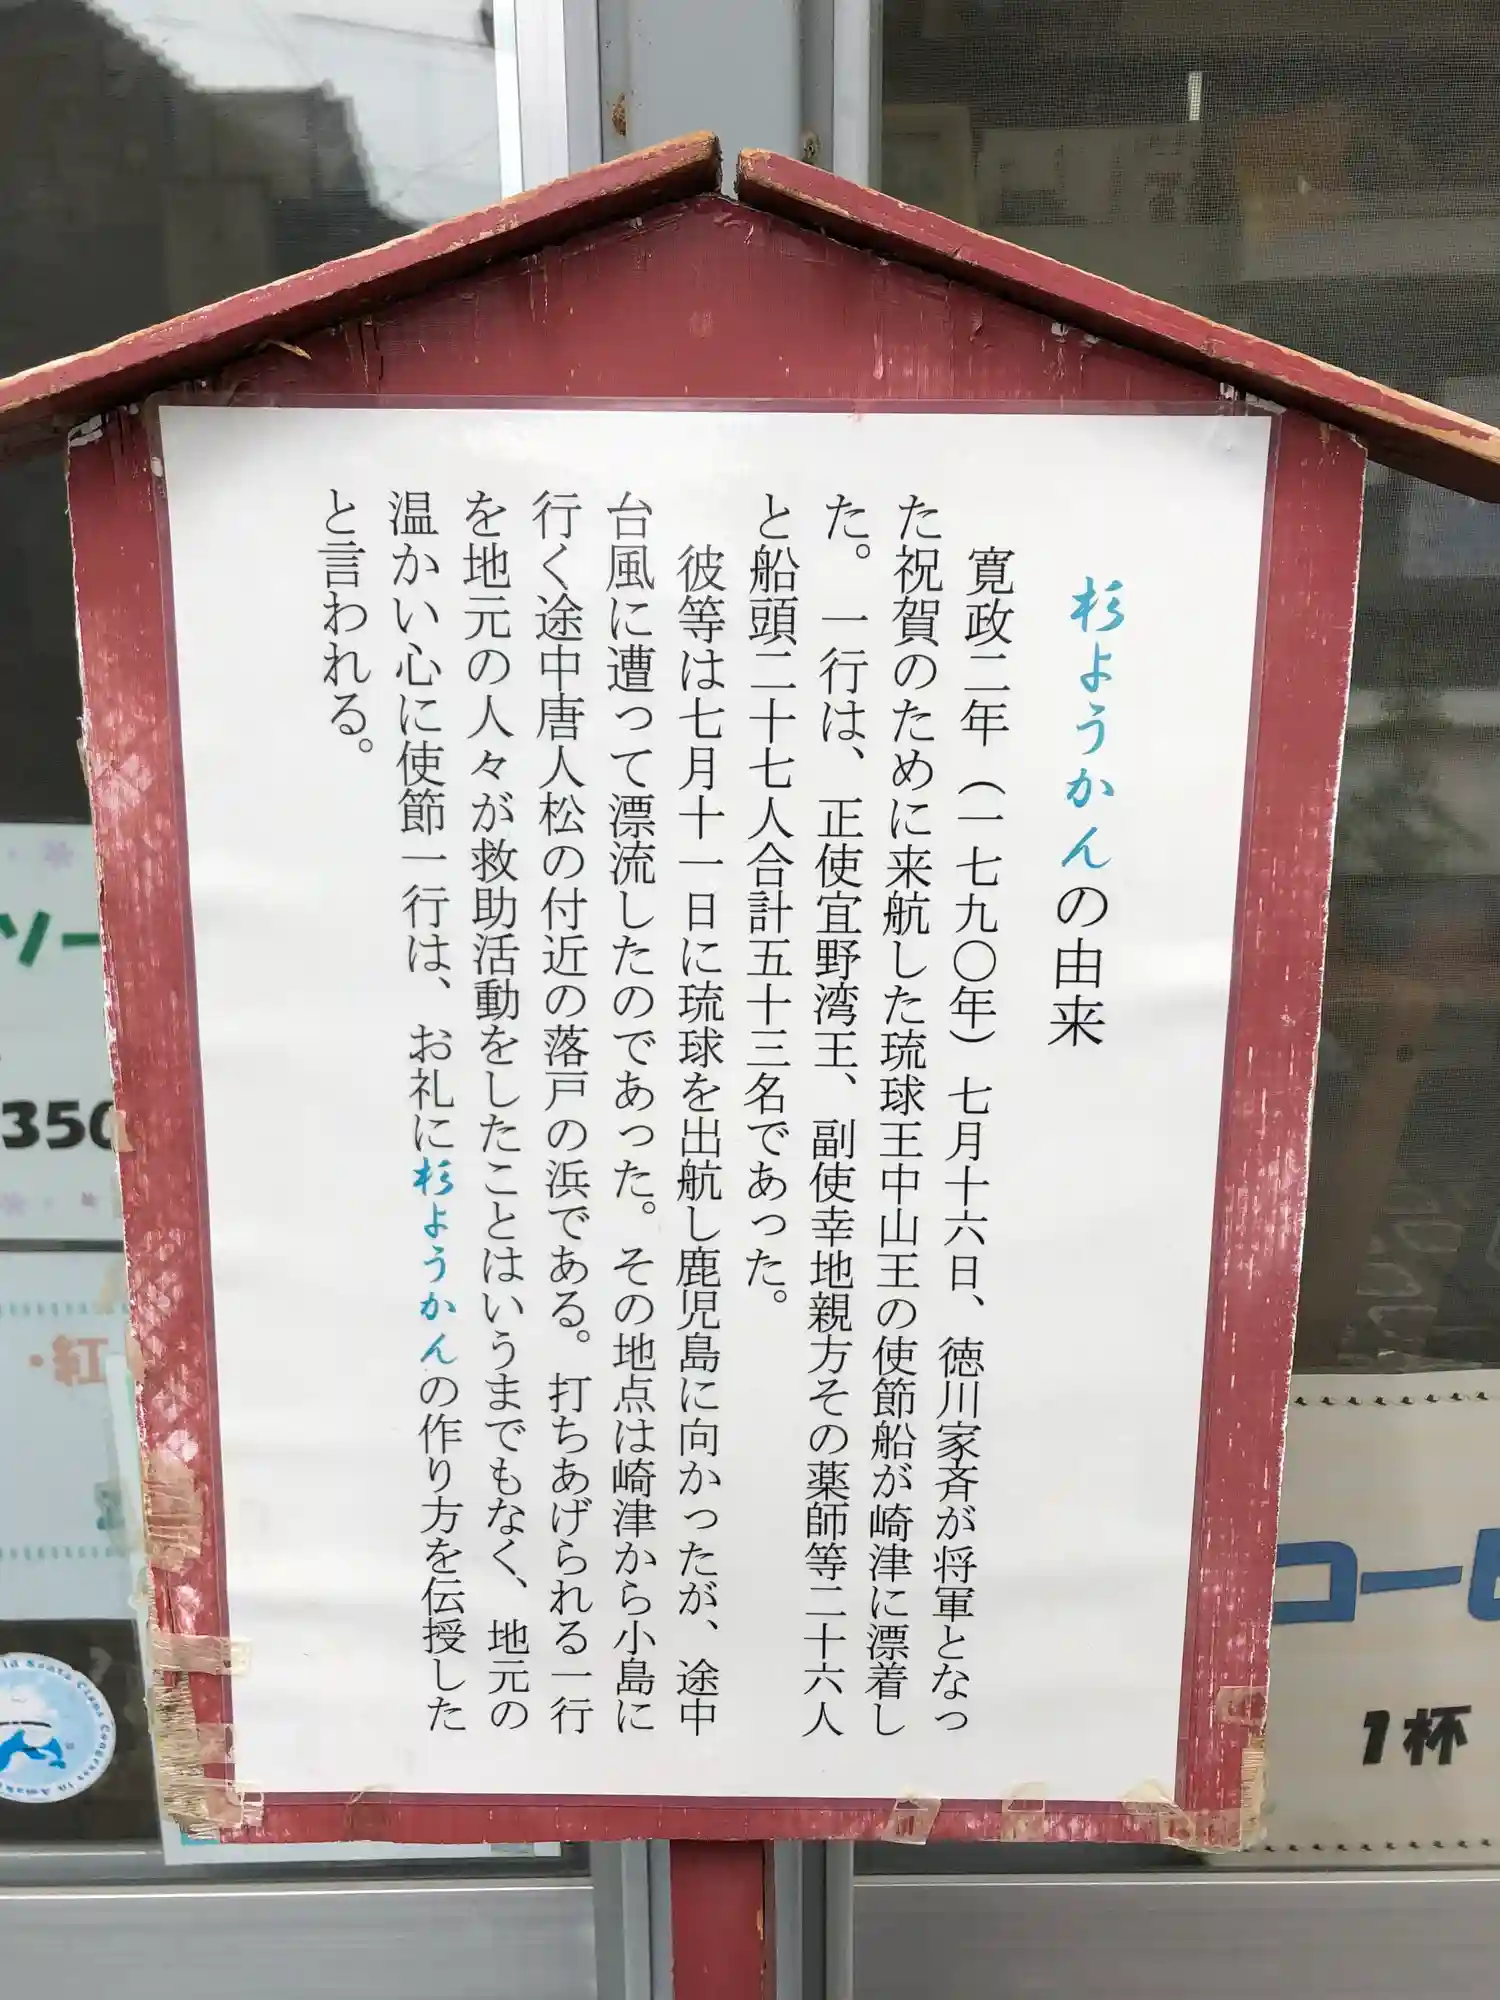 杉ようかんの由来
寛政二年（一七九〇年）七月十六日、徳川家斉が将軍となっ
た祝賀のために来航した琉球王中山王の使節船が崎津に漂着し
た。一行は、正使宜野湾王、副使幸地親方その薬師等二十六人
と船頭二十七人合計五十三名であった。
彼等は七月十一日に琉球を出航し鹿児島に向かったが、途中
台風に遭って漂流したのであった。その地点は崎津から小島に
行く途中唐人松の付近の落戸の浜である。打ちあげられる一行
を地元の人々が救助活動をしたことはいうまでもなく、地元の
温かい心に使節一行は、お礼に杉ようかんの作り方を伝授した
と言われる。
ソー
350
コーヒ
1杯